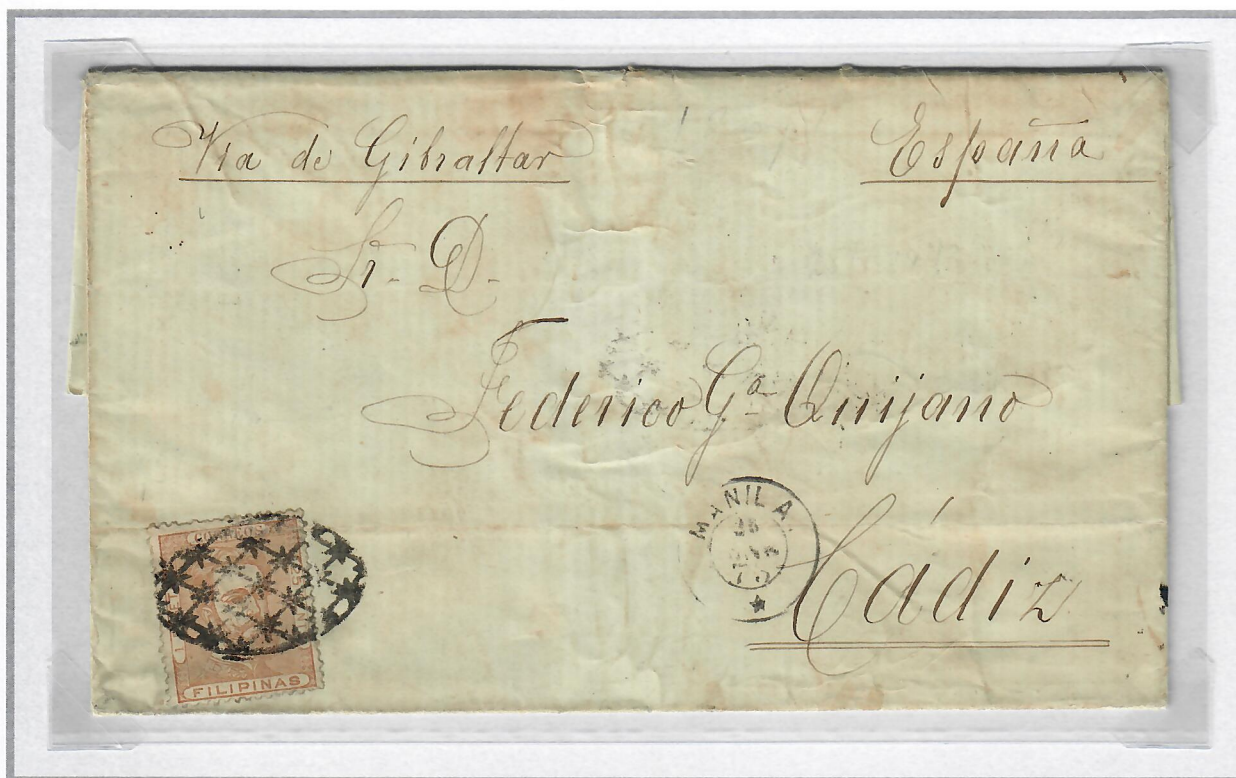 Via de Gibraltar
España
Sr. D.
Federico Gª Quijano
MANILA
Cádiz
CORREOS
FILIPINAS